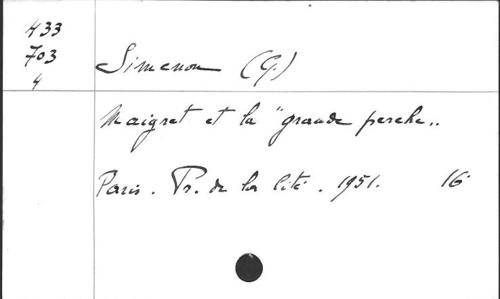 433
703
4
Simenon (G.)
Maigret et la "grande perche„
Paris. Pr. de la Cité. 1951. 16°